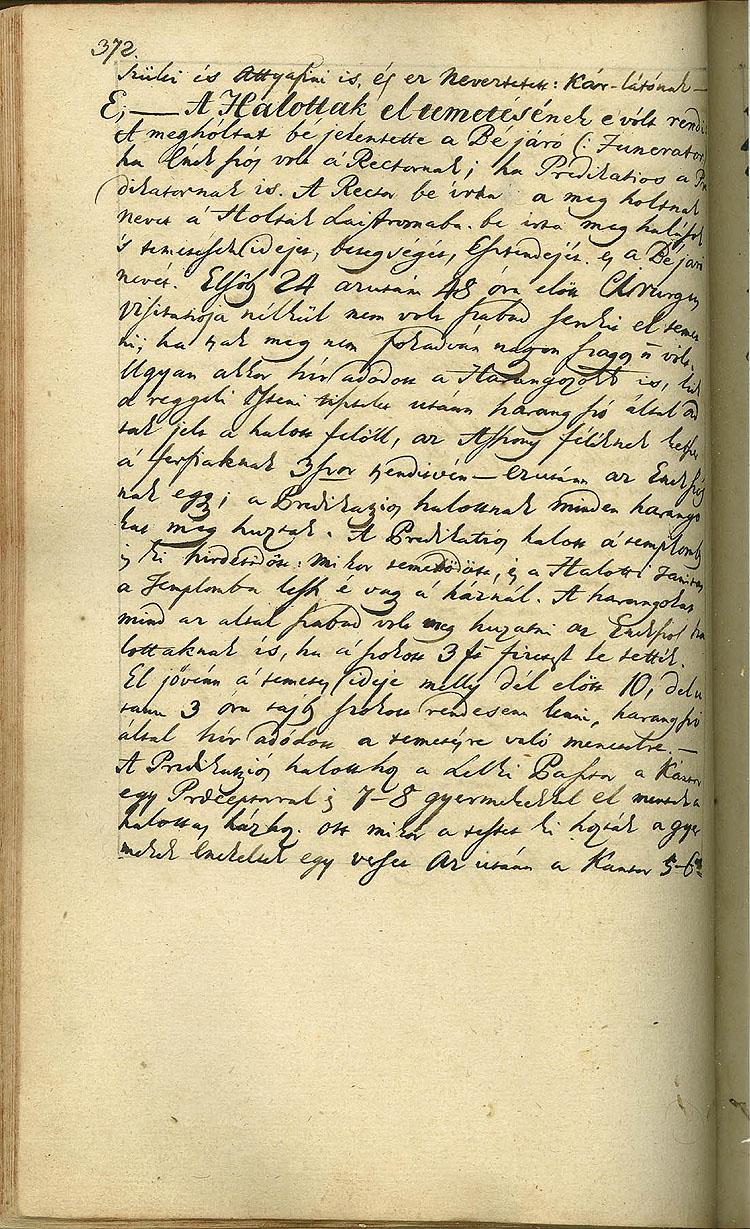 372.
szülei és Attyafiai is, és ez Neveztetett: Kár-látónak —
E; — A Halottak el temetésének é vólt rendi
A megholtat be jelentette a Bé járó (: Funerator
ha Ének szós volt a Rectornak; ha Prédikatios a Pre
dikatornak is. A Rector be irta a meg holtnak
nevét a Holtak Laistromaba. be irta meg halások
s temetések idejét, betegségét, Esztendejét. és a Bejaró
nevét. Elsőb 24 azután 48 óra előtt Chirurgus
visitatioja nélkül nem volt szabad senkit el temet
ni; ha tsak meg nem fokadván nagyon szagos ń volt.
Ugyan akkor hír adódott a Harangozónak is, kik
a reggeli Isteni tisztelet utánn harang szó által ad
tak jelt a halott felöll, az Asszony féléknek kettöt
a ferfiaknak 3szor tsenditvén — ezutánn az Enek szós
nak egy; a Predikaziós halottnak minden harango
kat meg huztak. A Predikatiós halott a templomb
is ki hirdetődött: mikor temetödött, és a Halotti Tanitas
a Templomba lessz é vagy a háznál. A harangokat
mind az által szabad volt meg huzatni az Enekszós ha
lottaknak is, ha a szokott 3 ft fizetést le tették.
El jővénn a temetés ideje melly dél előtt 10, dél u
tann 3 óra tájb szokott rendesenn lenni, harang szó
által hír adódott a temetésre való menetelre. —
A Predikaziós halotthoz a Lelki Pásztor a Kántor
egy Præceptorral és 7-8 gyermekekkel el mentek a
halottas házhoz. ott mikor a testet ki hozták a gyer
mekek énekeltek egy verset Az utánn a Kantor 5-6